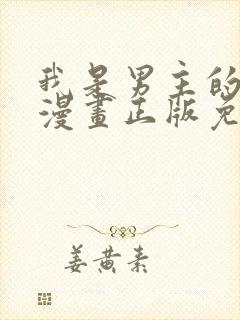 我是男主的
漫畫正版免
姜黄素